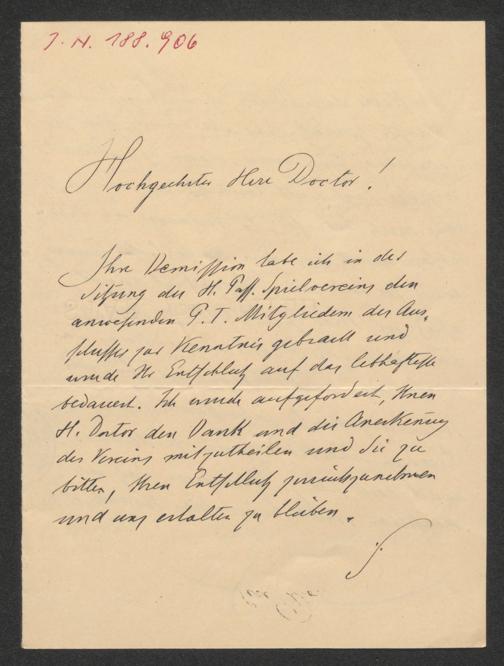 J. N. 188.906
Hochgeehrter Herr Doctor!
Ihre Demission habe ich in der
Sitzung des H. Pass. Spielvereins den
anwesenden P. T. Mitgliedern des Aus-
schusses zur Kenntnis gebracht und
wurde Ihr Entschluß auf das lebhafteste
bedauert. Ich wurde aufgefordert, Ihnen
H. Doctor den Dank und die Anerkennung
des Vereins mitzutheilen und Sie zu
bitten, Ihren Entschluß zurückzunehmen
und uns erhalten zu bleiben.